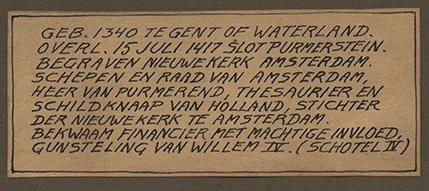 GEB. 1340 TE GENT OF WATERLAND.
OVERL. 15 JULI 1417 SLOT PURMERSTEIN.
BEGRAVEN NIEUWE KERK AMSTERDAM.
SCHEPEN EN RAAD VAN AMSTERDAM,
HEER VAN PURMEREND, THESAURIER EN
SCHILDKNAAP VAN HOLLAND, STICHTER
DER NIEUWE KERK TE AMSTERDAM.
BEKWAAM FINANCIER MET MACHTIGE INVLOED,
GUNSTELING VAN WILLEM IV. (SCHOTEL IV)